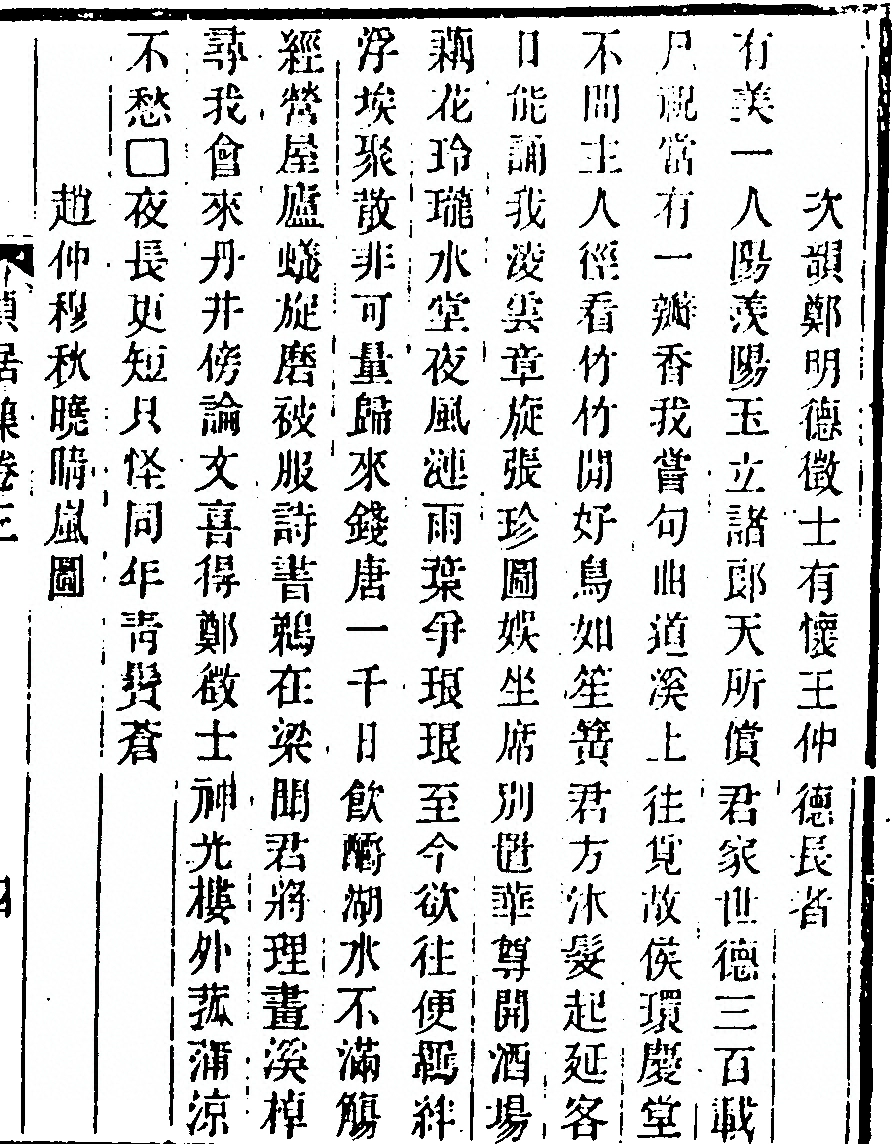 次韻鄭明德徵士有懷王仲德長者
有美一人陽羨陽玉立諸郎天所償君家世德三百載
尸祝當有一瓣香我嘗句曲道溪上往覓故侯環慶堂
不問主人徑看竹竹間好鳥如笙簧君方沐髮起延客
日能誦我淩雲章旋張珍圖娛坐席別置華尊開酒場
藕花玲瓏水堂夜風漣雨葉爭琅琅至今欲往便羈絆
浮埃聚散非可量歸來錢唐一千日飲酹湖水不滿觴
經營屋廬蟻旋磨被服詩書鵜在梁聞君將理畫溪棹
尋我會來丹井傍論文喜得鄭徵士神光樓外菰蒲涼
不愁□夜長更短只怪同年青鬢蒼
趙仲穆秋曉晴嵐圖
貞居集卷三